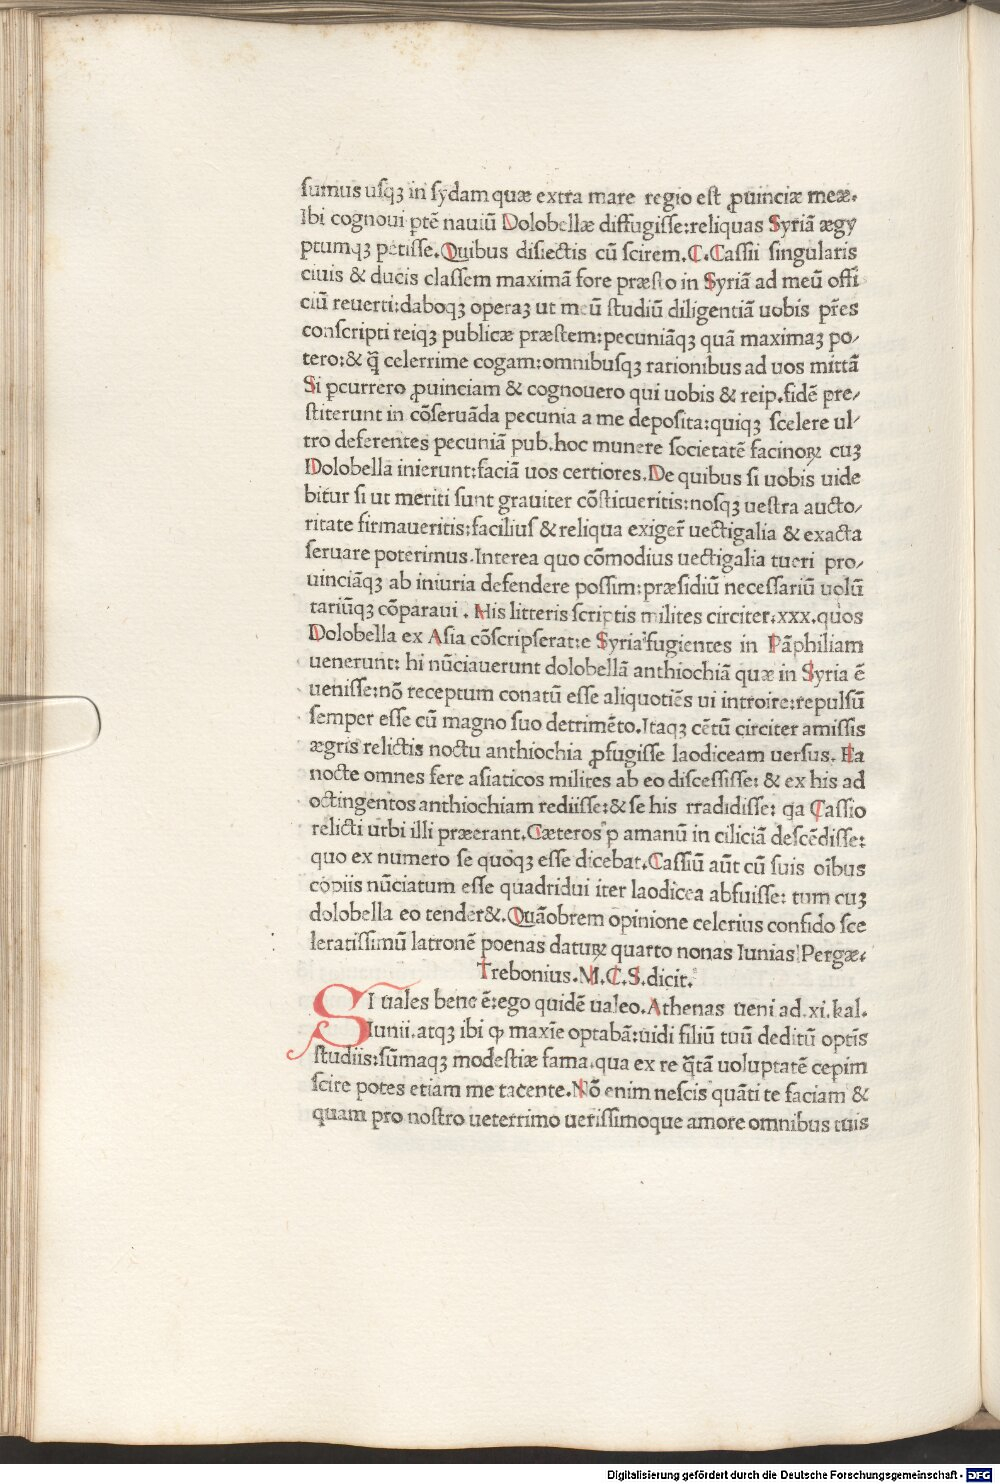 sumus usqꝫ in sydam quæ extra mare regio est ꝓuinciæ meæ.
Ibi cognoui ꝑtē nauiū Dolobellæ diffugisse:reliquas Syriā ægy
ptumqꝫ petisse.Quibus disiectis cū scirem.C.Cassii singularis
ciuis & ducis classem maximā fore præsto in Syriā ad meū offi
ciū reuerti:daboqꝫ operaꝫ ut meū studiū diligentiā uobis pr̄es
conscripti reiqꝫ publicæ præstem:pecuniāqꝫ quā maximaꝫ po/
tero:& q̄ꝫ celerrime cogam:omnibusqꝫ rationibus ad uos mittā
Si ꝑcurrero ꝓuinciam & cognouero qui uobis & reip.fidē pre/
stiterunt in cōseruāda pecunia a me deposita:quiqꝫ scelere ul/
tro deferentes pecuniā pub.hoc munere societatē facinoꝝ cuꝫ
Dolobella inierunt:faciā uos certiores.De quibus si uobis uide
bitur si ut meriti sunt grauiter cōstitueritis:nosqꝫ uestra aucto/
ritate firmaueritis:facilius & reliqua exiger̄ uectigalia & exacta
seruare poterimus.Interea quo cōmodius uectigalia tueri pro/
uinciāqꝫ ab iniuria defendere possim:præsidiū necessariū uolū
tariūqꝫ cōparaui . His litteris scriptis milites circiter.xxx.quos
Dolobella ex Asia cōscripserat:e Syria fugientes in Pāphiliam
uenerunt: hi nūciauerunt dolobellā anthiochiā quæ in Syria ē
uenisse:nō receptum conatū esse aliquotiēs ui introire:repulsū
semper esse cū magno suo detrimēto.Itaqꝫ cētū circiter amissis
ægris relictis noctu anthiochia ꝓfugisse laodiceam uersus. Ea
nocte omnes fere asiaticos milites ab eo discessisse: & ex his ad
octingentos anthiochiam rediisse:& se his rradidisse: qa Cassio
relicti urbi illi præerant.Cæteros p amanū in ciliciā descēdisse:
quo ex numero se quoqꝫ esse dicebat.Cassiū aūt cū suis oībus
copiis nūciatum esse quadridui iter laodicea abfuisse: tum cuꝫ
dolobella eo tender&.Quāobrem opinione celerius confido sce
leratissimū latronē poenas datuꝝ quarto nonas Iunias Pergæ.
Trebonius.M.C.S.dicit.
SI uales bene ē:ego quidē ualeo.Athenas ueni ad.xi.kal.
Iunii.atqꝫ ibi ꝙ maxīe optabā:uidi filiū tuū deditū optīs
studiis:sūmaqꝫ modestiæ fama.qua ex re q̄tā uoluptatē cepim
scire potes etiam me tacente.Nō enim nescis quāti te faciam &
quam pro nostro ueterrimo uerissimoque amore omnibus tuis
Digitalisierung gefördert durch die Deutsche Forschungsgemeinschaft - DFG